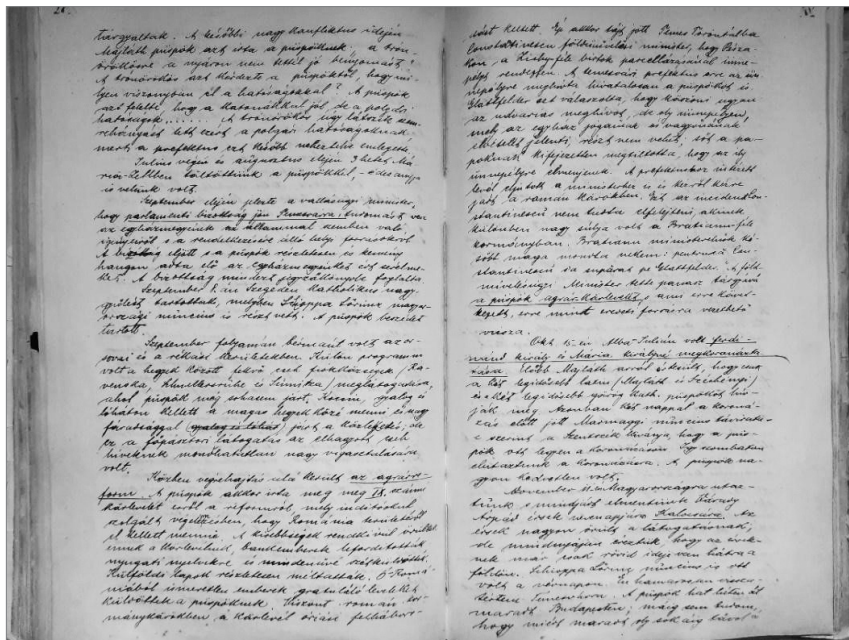 tárgyaltak. A későbbi nagy konfliktus idején
Majláth püspök azt írta a püspöknek, "a trón-
örökösre a nyáron nem tettél jó benyomást"!
A trónörökös azt kérdezte a püspöktől, hogy mi-
lyen viszonyban él a hatóságokkal? A püspök
azt felelte, hogy a katonákkal jól, de a polgári
hatóságok....... A trónörökös úgy látszik szem-
rehányást tett ezért a polgári hatóságoknak
mert a prefektus ezt később neheztelve emlegette.
Julius végén és augusztus elején 3 hetet Má-
riás töltöttünk a püspökkel, édesanyja
is velünk volt.
September elején jelezte a vallásügyi miniszter,
hogy parlamenti bizottság jön Temesvárra, tudomást
az egyházmegyének az állammal szemben való
igényeiről s a rendelkezésére álló helyi forrásokról
A bizottság eljött s a püspök részletesen és kemény
hangon adta elő az egyházmegyének ért sérelme-
ket. A bizottság mindezt jegyzőkönyvbe foglalta
September 8.án Szegeden Katholikus nagy-
gyűlést tartottak, melyen Schioppa Lőrinc magyar-
országi nuncius is részt vett. A püspök beszédet
tartott.
September folyamán bérmaút volt az or-
sovai és a rékási kerületekben. Külön programm
volt a hegyek között fekvő cseh fiókközségek /Ra-
venska, és Sumitka/ meglátogatása,
ahol püspök még sohasem járt. Kocsin, gyalog és
lóháton kellett a magas hegyek közé menni és nagy
fáradsággal (gyalog és lóháton) járt a közlekedés, de
ez a főpásztori látogatás az elhagyott cseh
híveknek mondhatatlan nagy vigasztalására
volt.
Közben végrehajtás alá került az agrárre-
form. A püspök akkor írta meg IX. számú
körlevelét erről a reformról, mely indítóokul
szolgált végeredményben, hogy Románia területéről
el kellett mennie. A kisebbségek rendkívül örültek
ennek a körlevélnek, bankemberek lefordították
nyugati nyelvekre és mindenüvé szétküldötték.
Külföldi lapok részletesen méltatták. Ó-Romá-
niából ismeretlen emberek gratuláló leveleket
küldöttek a püspöknek. Viszont román kor-
mánykörökben a körlevél óriási felhábor-
odást keltett. Ép akkor tájt jött Temes Torontálba
Constantinescu földmívelési minister, hogy
a birtok parcellázásánál ünne-
pélyt rendezzen. A temesvári prefektus erre az ün-
nepélyre meghívta hivatalosan a püspököt és
Glattfelder azt válaszolta, hogy köszöni ugyan
az udvarias meghívást, de oly ünnepélyen,
mely az egyház jogainak és vagyonának
elvételét jelenti, részt nem vehet, sőt a pa-
poknak kifejezetten megtiltotta, hogy az ily
ünnepélyre elmenjenek. A prefektushoz intézett
levél eljutott a ministerhez is és kézről kézre
járt a román körökben. Ezt az incidenst Con-
stantinescu nem tudta elfelejteni, akinek
különben nagy súlya volt a Bratianu-féle
kormányban. Bratianu ministerelnök ké-
sőbb maga mondta nekem: pentrucă Con-
stantinescu s'a supărat pe Glattfelder. A föld-
mívelésügyi Minister tette panasz tárgyává
a püspök agrárkörlevelét s ami erre követ-
kezett, erre mint eredeti forrásra vezethető
vissza.
Okt. 15-én Alba-Julián volt Ferdi-
nánd király és Mária királyné megkoronázta-
tása. Előbb Majláth arról értesült, hogy csak
a két legidősebb latin /Majláth és Széchényi/
és a két legidősebb görög kath. püspököt hív-
ják meg. Azonban két nappal a koroná-
zás előtt jött Marmaggi nuncius távirata
e szerint a Szentszék kívánja, hogy a püs-
pök ott legyen a koronázáson. Így szombaton
elutaztunk a koronázásra. A püspök na-
gyon kedvetlen volt.
November 11-én Magyarországra utaz-
tunk s mindjárt elmentünk Várady
Árpád érsek névnapjára Kalocsára. Az
érsek nagyon örült a látogatásnak,
de mindnyájan éreztük, hogy az érsek-
nek már csak rövid ideje van hátra a
földön. Schioppa Lőrinc nuncius is ott
volt a névnapon. Én hamarosan vissza-
tértem Temesvárra. A püspök hat hétig ott
maradt Budapesten; máig sem tudom,
hogy miért maradt oly sokáig távol a